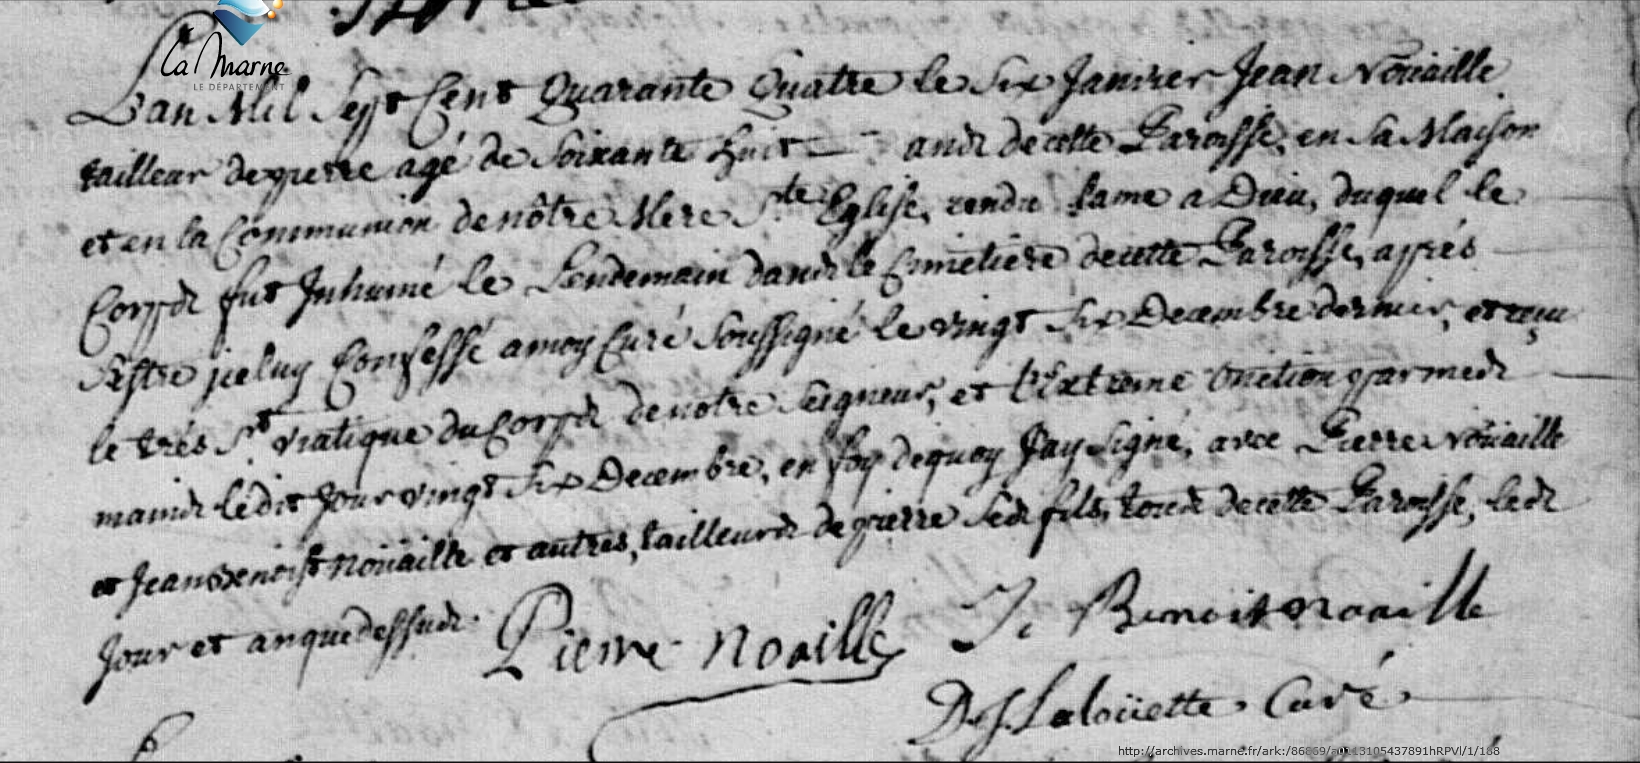 La Marne
LE DÉPARTEMENT
Lan Mil Sept Cent Quarante Quatre le Six Janvier Jean Noüaille
tailleur de pierre agé de Soixante huit ans de cette Paroisse, en Sa Maison
et en la Communion de nôtre Mere Ste Eglise, rendu lame a Dieu, duquel le
Corps fut Inhumé le Lendemain dans le Cimetiere de cette Paroisse, aprés
S'estre jceluy Confessé a moy Curé Soussigné le vingt Six Decembre dernier, et reçu
le trés St viatique du Corps de notre Seigneur, et l'Extreme Onction par mes
mains ledit Jour vingt Six Decembre, en foy de quoy Jay Signé, avec Pierre Noüaille
et Jean Benoist Noüaille et autres, tailleurs de pierre Ses fils, tous de cette Paroisse, les
Jour et an que dessus.
Pierre Noaille
J. Benoit noaille
Laloüette Curé
http://archives.marne.fr/ark:/86869/a0113105437891hRPVl/1/188